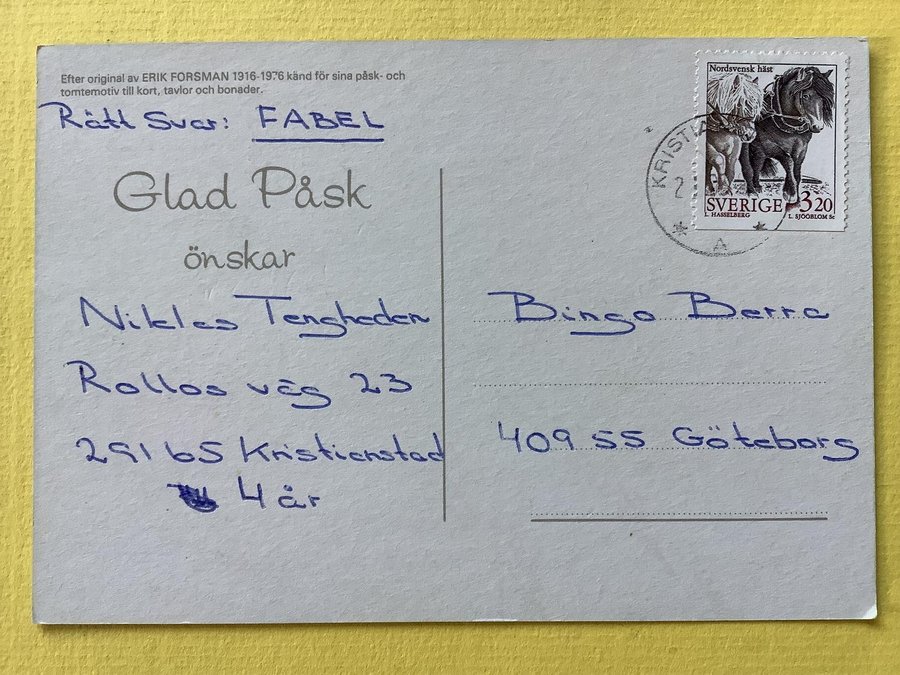 Efter original av ERIK FORSMAN 1916-1976 känd för sina påsk- och
tomtemotiv till kort, tavlor och bonader.
Rätt Svar: FABEL
Glad Påsk
önskar
Niklas Tengheden
Rollos väg 23
291 65 Kristianstad
4 år
Nordsvensk häst
SVERIGE 3 20
L. HASSELBERG L. SJÖÖBLOM Sc
KRISTIA
2
A
Bingo Berra
409 55 Göteborg